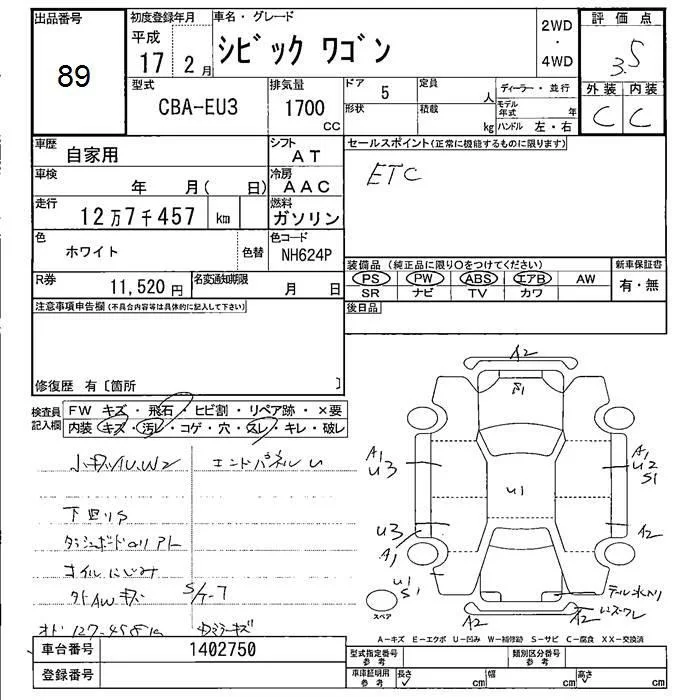 出品番号
89
初度登録年月
平成
17 2月
車名・グレード
シビック ワゴン
2WD
・
4WD
評価点
3.5
外装 内装
C C
型式
CBA-EU3
排気量
1700
CC
ドア 5
定員 人
形状
積載 kg
ディーラー・並行
モデル年式 年
ハンドル 左・右
車歴
自家用
シフト
AT
セールスポイント(正常に機能するものに限ります)
ETC
車検
年 月( 日)
冷房
AAC
走行
12万7千457 km
燃料
ガソリン
色
ホワイト
色替
色コード
NH624P
装備品(純正品に限り○をつけてください)
PS PW ABS エアB AW
SR ナビ TV カワ
新車保証書
有・無
R券
11,520円
名変通知期限
月 日
後日品
注意事項申告欄(不具合内容等は具体的に記入して下さい)
修復歴 有〔箇所 〕
検査員記入欄
FW キズ・飛石・ヒビ割・リペア跡・×要
内装 キズ・汚レ・コゲ・穴・スレ・キレ・破レ
小キズU.W2
エンドパネルU
下回りS
ダッシュボードのリアト
オイルにじみ
外AWキズ
A2
A1
A1
U3
A1
U2
S1
U1
U3
A1
A2
U1
S1
A2
A2
スペア
A-キズ E-エクボ U-凹み W-補修跡 S-サビ C-腐食 XX-交換済
車台番号
1402750
登録番号
型式指定番号
参考
類別区分番号
参考
車庫証明用
参考
長さ cm
幅 cm
高さ cm